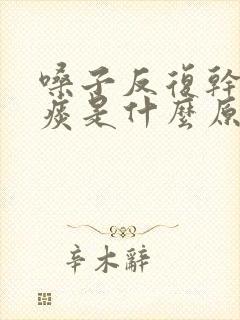 嗓子反復幹
痰是什麼原
辛木辭